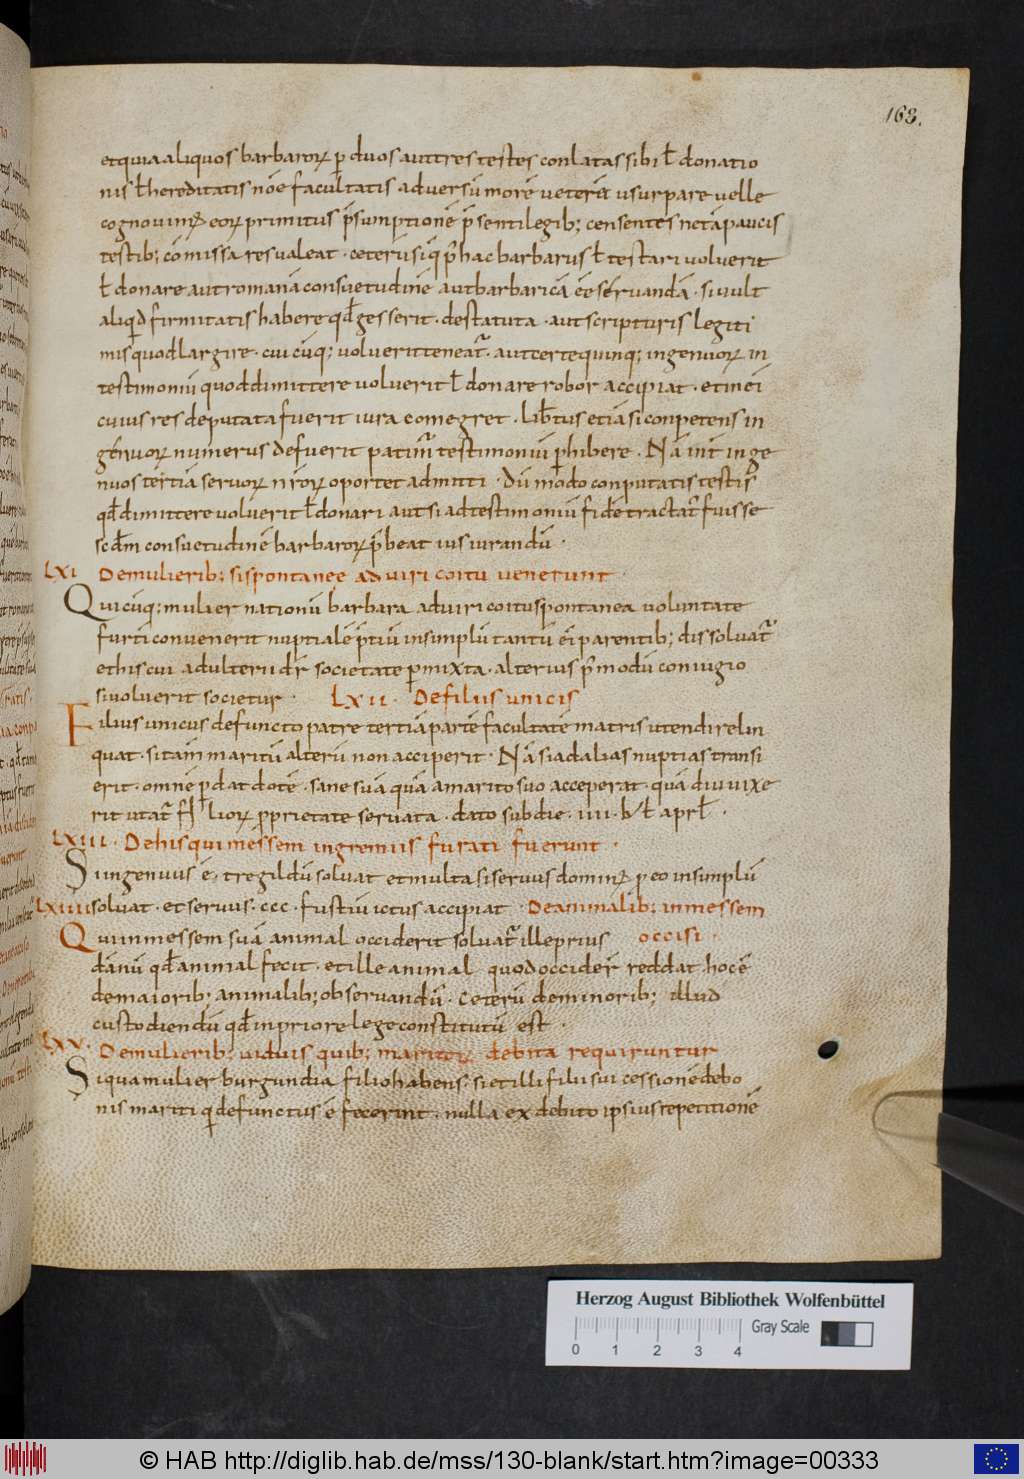 168.
et quia aliquos barbaroꝝ ꝑ duos aut tres testes conlatas sibi ƚ donatio
nis ƚ hereditatis nōe facultatis adversū morē veterū usurpare velle
cognovimꝰ eoꝝ primitus p̄sumptionē p̄senti legib; censentes ne tā paucis
testib; cōmissa res valeat · ceterū si q̄ p̄ hac barbarus ƚ testari voluerit
ƚ donare aut romanā consuetudinē aut barbaricā ēē servandā · si vult
aliqd firmitatis habere qđ gesserit · destatuta · aut scripturis legiti
mis quod largire · cuicūq; voluerit teneat᷑ · aut certe quinq; ingenuoꝝ in
testimoniū quod dimittere voluerit ƚ donare robor accipiat · et in ei
cuius res deputata fuerit iura comegret · lib̄tus etiā si conpetens in
genuoꝝ numerus defuerit patim̄ testimoniū ꝑhibere · Nā int̄ inge
nuos tertiā servoꝝ nr̄oꝝ oportet admitti · dū modo conputatis testis
qđ dimittere voluerit ƚ donari aut si ad testimoniū fidē tractat᷑ fuisse
scđm consuetudinē barbaroꝝ p̄beat iusiurandū ·
LXI De mulierib; si spontanee ad viri coitu venerunt ·
Quicūq; mulier nationū barbara ad viri coitu spontanea voluntate
furti convenerit nuptialē p̄tiū in simplū tantū ei parentib; dissolvat᷑
et his cui adulterii dr̄ societate ꝑmixta · alterius p̄modū coniugio
si voluerit societur · LXII · De filius unicis
Filius unicus defuncto patre tertiā partē facultatē matris utendi relin
quat · si tam̄ maritū alterū non acciperit · Nā si ad alias nuptias transi
erit · omnē ꝑdat dotē · sane suā quā a marito suo acceperat · quā diu vixe
rit utat᷑ filioꝝ ꝓprietate servata · dato sub die · IIII · kƚ aprƚ ·
LXIII · De his qui messem in gremiis furati fuerunt ·
Si ingenuus ē, tregildū solvat et multa si servus dominꝰ ꝑ eo in simplū
solvat · et servus · ccc · fustiū ictus accipiat · LXIIII De animalib; in messem
Qui in messem suā animal occiderit solvat᷑ ille prius occisi ·
dānū qđ animal fecit · et ille animal quod occider̄ reddat hoc ē
de maiorib; animalib; observandū · ceterū de minorib; illud
custodiendū qđ in priore lege constitutū est ·
LXV · De mulierib; viduis quib; maritoꝝ debita requiruntur
Si qua mulier burgundia filio habens · si et illi filii sui cessionē de bo
nis mariti qi defunctus ē fecerint · nulla ex debito ipsius repetitionē
Herzog August Bibliothek Wolfenbüttel
Gray Scale
0 1 2 3 4
© HAB http://diglib.hab.de/mss/130-blank/start.htm?image=00333